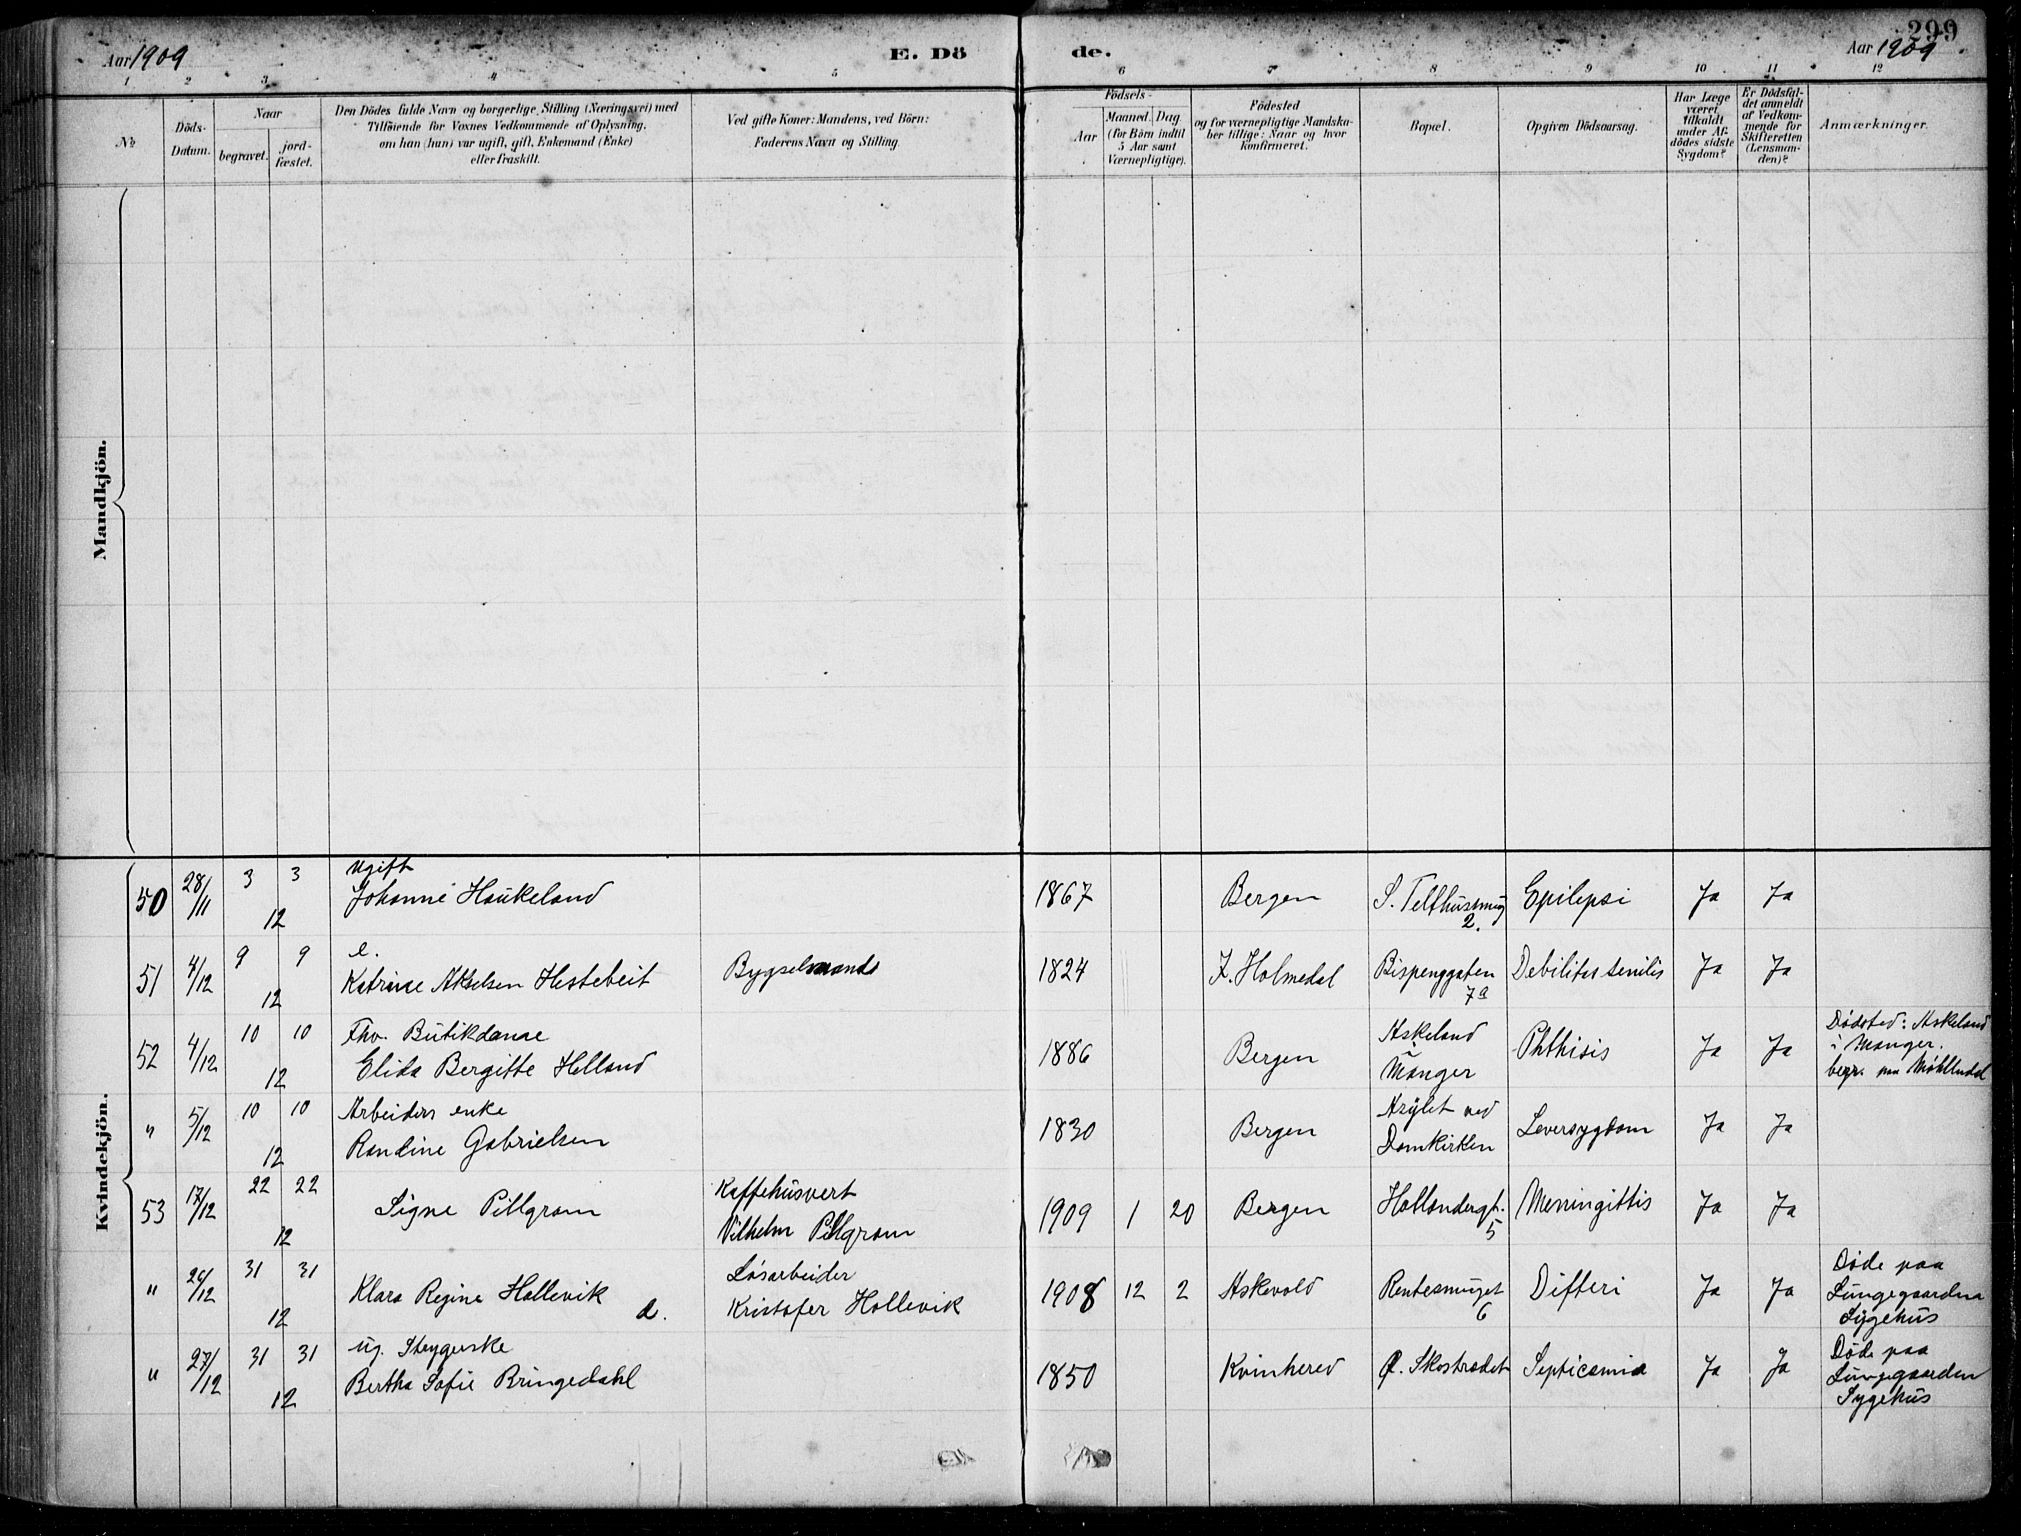 299
Aar 1909
E. Dö
de.
Aar 1909
1 2 3 4 5 6 7 8 9 10 11 12
No
Döds-Datum.
Naar
begravet.
jord-fæstet.
Den Dödes fulde Navn og borgerlige Stilling (Næringsvei) med
Tilföiende for Voxnes Vedkommende af Oplysning,
om han (hun) var ugift, gift, Enkemand (Enke)
eller fraskilt.
Ved gifte Koner: Mandens, ved Börn:
Faderens Navn og Stilling.
Födsels-
Aar
Maaned. Dag
(for Börn indtil
5 Aar samt
Værnepligtige).
Födested
og for værnepligtige Mandska-
ber tillige: Naar og hvor
konfirmeret.
Bopæl.
Opgiven Dödsaarsag.
Har Læge
været
tilkaldt
under Af-
dödes sidste
Sygdom?
Er Dödsfal-
det anmeldt
af Vedkom-
mende for
Skifteretten
(Lensman-
den)?
Anmærkninger.
Mandkjön.
Kvindekjön.
50 28/11 3 3 12 Ugift
Johanne Haukeland 1867 Bergen S. Telthusmug 2. Epilepsi Ja Ja
51 4/12 9 9 12 e.
Katrine Akselsen Hestebeit Bygselmands 1824 Y. Holmedal Bispenggaten 7a Debilitas senilis Ja Ja
52 4/12 10 10 12 Fhv. Butikdame
Elida Bergitte Helland 1886 Bergen Askeland
Manger Phthisis Ja Ja Dødsted: Askeland
i Manger.
begr. paa Møhlendal
" 5/12 10 10 12 Arbeiders enke
Randine Gabrielsen 1830 Bergen Asylet ved
Domkirken Leversygdom Ja Ja
53 17/12 22 22 12 Signe Pillgram Kaffehusvert
Vilhelm Pillgram 1909 1 20 Bergen Hollendergt. 5 Meningittis Ja Ja
" 26/12 31 31 12 Klara Regine Hallevik d. Løsarbeider
Kristofer Hallevik 1908 12 2 Askevold Rentesmuget 6 Difteri Ja Ja Døde paa
Lungegaardens
Sygehus
" 27/12 31 31 12 ug. Strygerske
Bertha Sofie Bringedahl 1850 Kvinherred Ø. Skostrædet Septicæmia Ja Ja Døde paa
Lungegaarden
Sygehus